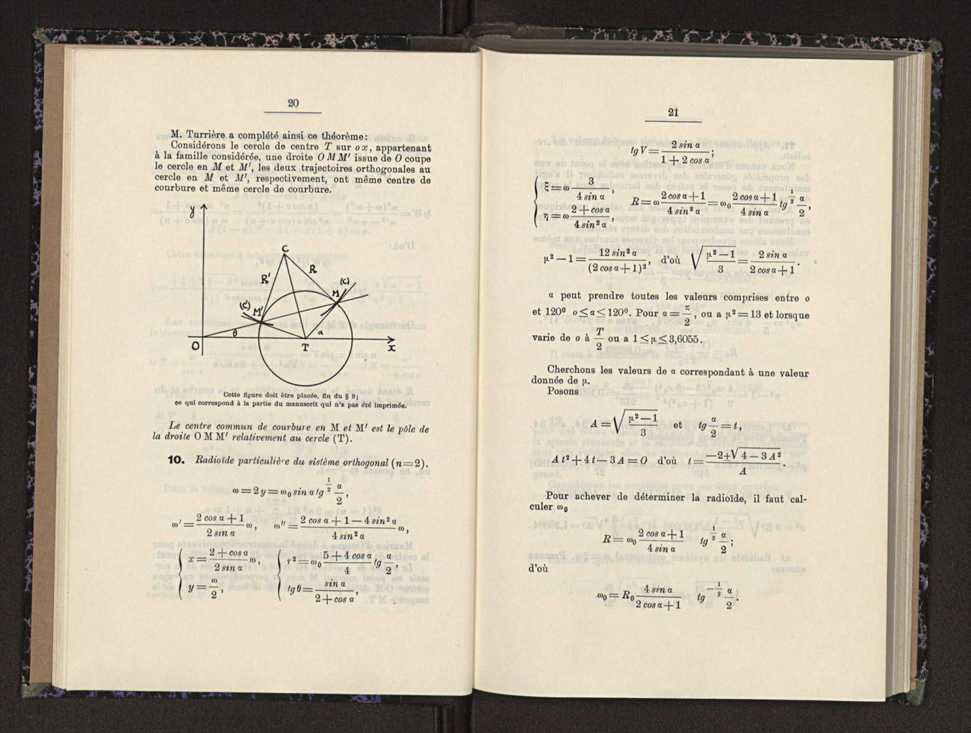 20
M. Turrière a complété ainsi ce théorème:
Considérons le cercle de centre T sur ox, appartenant
à la famille considérée, une droite O M M' issue de O coupe
le cercle en M et M', les deux trajectoires orthogonales au
cercle en M et M', respectivement, ont même centre de
courbure et même cercle de courbure.
y
C
R' R
(C') M' M (C)
O θ T α x
Cette figure doit être placée, fin du § 9;
ce qui correspond à la partie du manuscrit qui n'a pas été imprimée.
Le centre commun de courbure en M et M' est le pôle de
la droite O M M' relativement au cercle (T).
10. Radioïde particulière du sistème orthogonal (n=2).
ω = 2 y = ω₀ sin α tg^{1/2} α/2,
ω' = (2 cos α + 1)/(2 sin α) ω, ω'' = (2 cos α + 1 − 4 sin² α)/(4 sin² α) ω,
{ x = (2 + cos α)/(2 sin α) ω, { r² = ω₀ (5 + 4 cos α)/4 tg α/2,
{ y = ω/2, { tg θ = sin α/(2 + cos α),
21
tg V = (2 sin α)/(1 + 2 cos α);
{ ξ = ω 3/(4 sin α),
{ η = ω (2 + cos α)/(4 sin² α), R = ω (2 cos α + 1)/(4 sin² α) = ω₀ (2 cos α + 1)/(4 sin α) tg^{1/2} α/2,
μ² − 1 = (12 sin² α)/(2 cos α + 1)², d'où √((μ² − 1)/3) = (2 sin α)/(2 cos α + 1).
α peut prendre toutes les valeurs comprises entre o
et 120º o ≤ α ≤ 120º. Pour α = π/2, ou a μ² = 13 et lorsque
varie de o à T/2 ou a 1 ≤ μ ≤ 3,6055.
Cherchons les valeurs de α correspondant à une valeur
donnée de μ.
Posons
A = √((μ² − 1)/3) et tg α/2 = t,
A t² + 4 t − 3 A = O d'où t = (−2 + √(4 − 3 A²))/A.
Pour achever de déterminer la radioïde, il faut cal-
culer ω₀
R = ω₀ (2 cos α + 1)/(4 sin α) tg^{1/2} α/2;
d'où
ω₀ = R₀ (4 sin α)/(2 cos α + 1) tg^{−1/2} α/2.